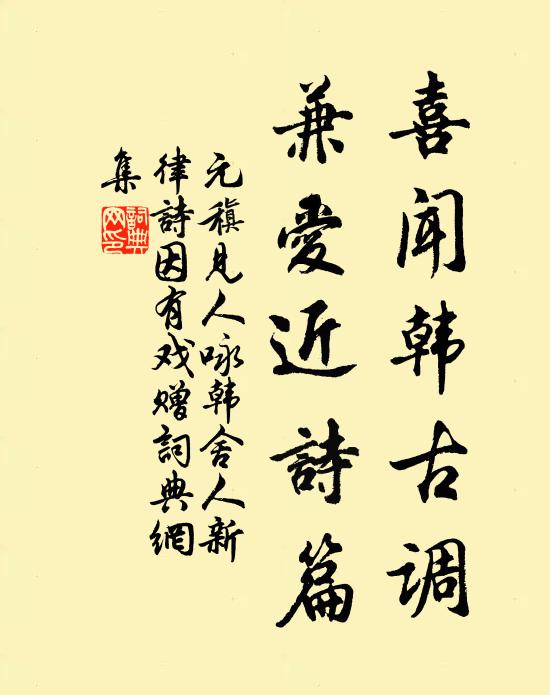 喜闻韩古调
兼愛近詩篇
元稹見人咏韩舍人新
律詩因有戏赠詞典網
集
詞典
网印